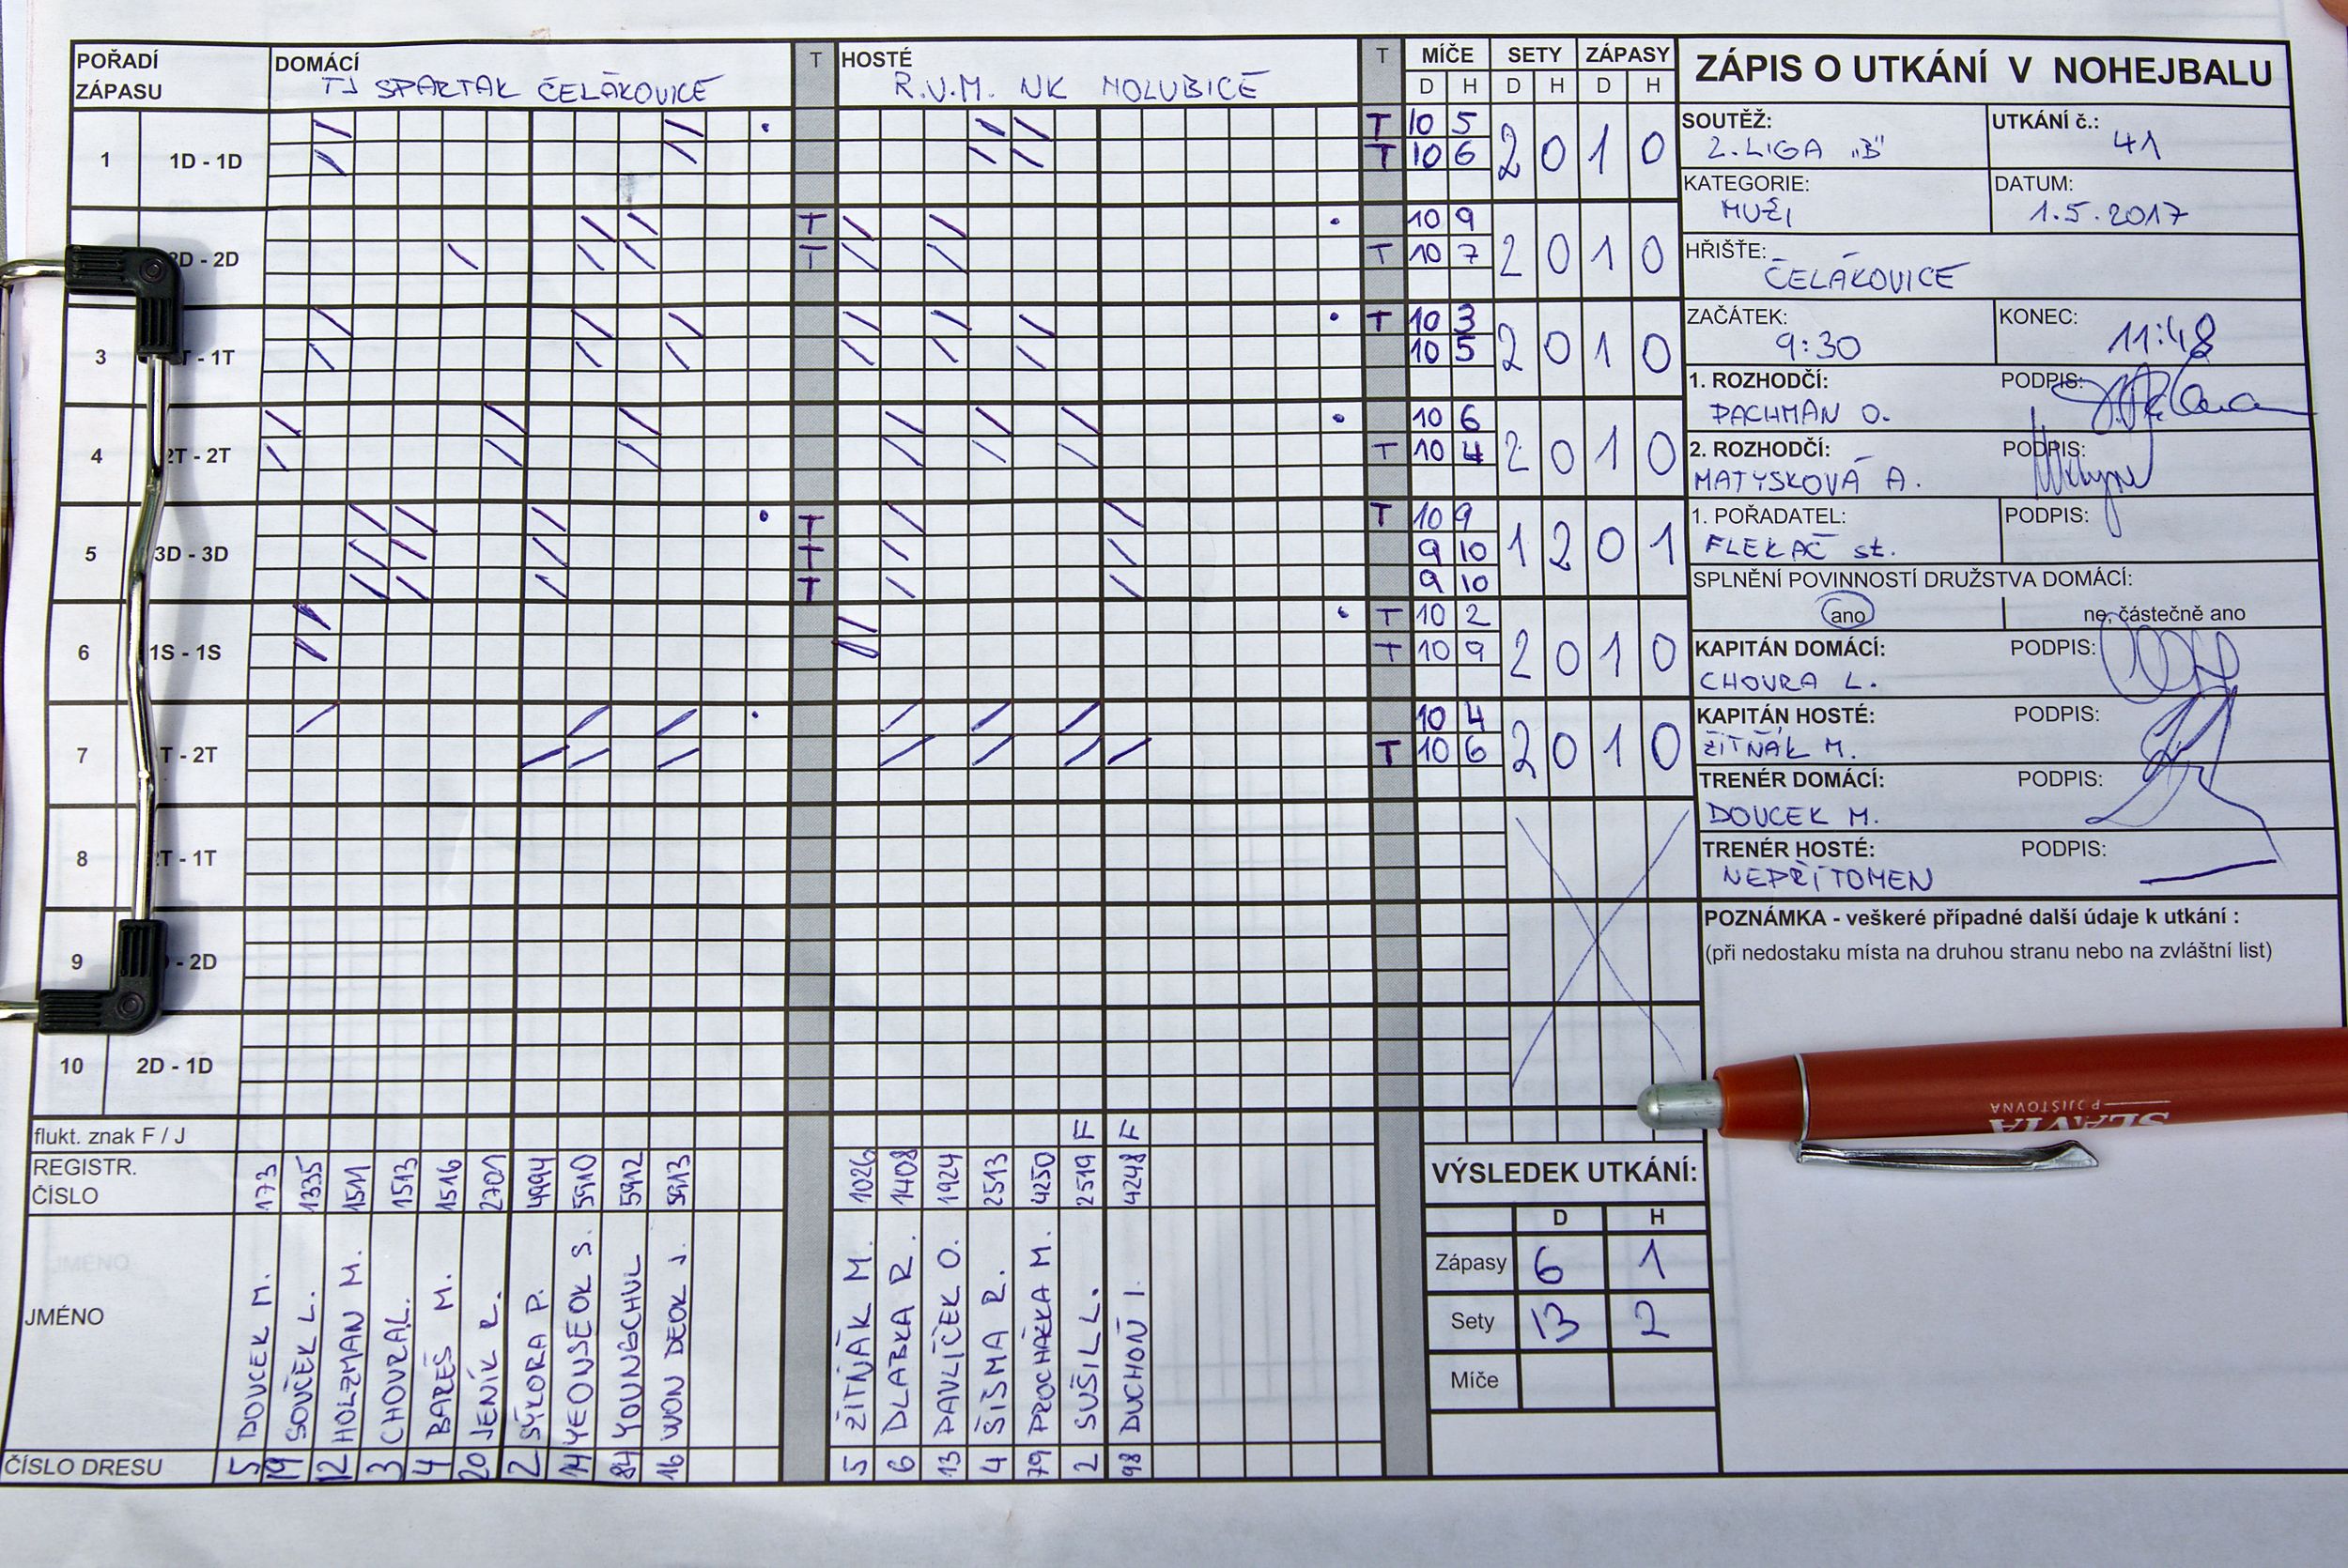 POŘADÍ ZÁPASU DOMÁCÍ TJ SPARTAK ČELÁKOVICE T HOSTÉ R.V.M. NK HOLUBICE T MÍČE SETY ZÁPASY
D H D H D H
1 1D - 1D T 10 5 2 0 1 0
T 10 6
2D - 2D T 10 9 2 0 1 0
T T 10 7
3 T - 1T T 10 3 2 0 1 0
10 5
4 2T - 2T 10 6 2 0 1 0
T 10 4
5 3D - 3D T T 10 9 1 2 0 1
T 9 10
T 9 10
6 1S - 1S T 10 2 2 0 1 0
T 10 9
7 T - 2T 10 4 2 0 1 0
T 10 6
8 2T - 1T
9 - 2D
10 2D - 1D
flukt. znak F / J F F
REGISTR. ČÍSLO 173 1335 1511 1513 1516 2701 4994 5910 5912 5913 1026 1408 1924 2513 4250 2519 4248
JMÉNO DOUCEK M. SOUČEK L. HOLZMAN M. CHOVRA L. BAREŠ M. JENÍK R. SÝKORA P. YEONSEOK S. YOUNGCHUL WON DEOK J. ŽITŇÁK M. DLABKA R. PAVLÍČEK O. ŠIŠMA R. PROCHÁZKA M. SUŠIL L. DUCHOŇ I.
ČÍSLO DRESU 5 19 12 3 4 20 2 14 84 16 5 6 13 4 79 2 98
ZÁPIS O UTKÁNÍ V NOHEJBALU
SOUTĚŽ: 2. LIGA „B" UTKÁNÍ č.: 41
KATEGORIE: MUŽI DATUM: 1.5.2017
HŘIŠTE: ČELÁKOVICE
ZAČÁTEK: 9:30 KONEC: 11:48
1. ROZHODČÍ: PODPIS:
PACHMAN O.
2. ROZHODČÍ: PODPIS:
MATYSKOVÁ A.
1. POŘADATEL: PODPIS:
FLEKAČ st.
SPLNĚNÍ POVINNOSTÍ DRUŽSTVA DOMÁCÍ:
ano ne, částečně ano
KAPITÁN DOMÁCÍ: PODPIS:
CHOVRA L.
KAPITÁN HOSTÉ: PODPIS:
ŽITŇÁK M.
TRENÉR DOMÁCÍ: PODPIS:
DOUCEK M.
TRENÉR HOSTÉ: PODPIS:
NEPŘÍTOMEN
POZNÁMKA - veškeré případné další údaje k utkání :
(při nedostaku místa na druhou stranu nebo na zvláštní list)
VÝSLEDEK UTKÁNÍ:
D H
Zápasy 6 1
Sety 13 2
Míče
SLAVIA
POJIŠŤOVNA